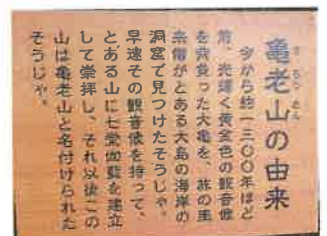 亀老山の由来
きろうさん
今から約一三〇〇年ほど
前、光輝く黄金色の観音像
を背負った大亀を、旅の
来僧がとある大島の海岸の
洞窟で見つけたそうじゃ。
早速その観音像を持って、
とある山に七堂伽藍を建立
して崇拝し、それ以後この
山は亀老山と名付けられた
そうじゃ。